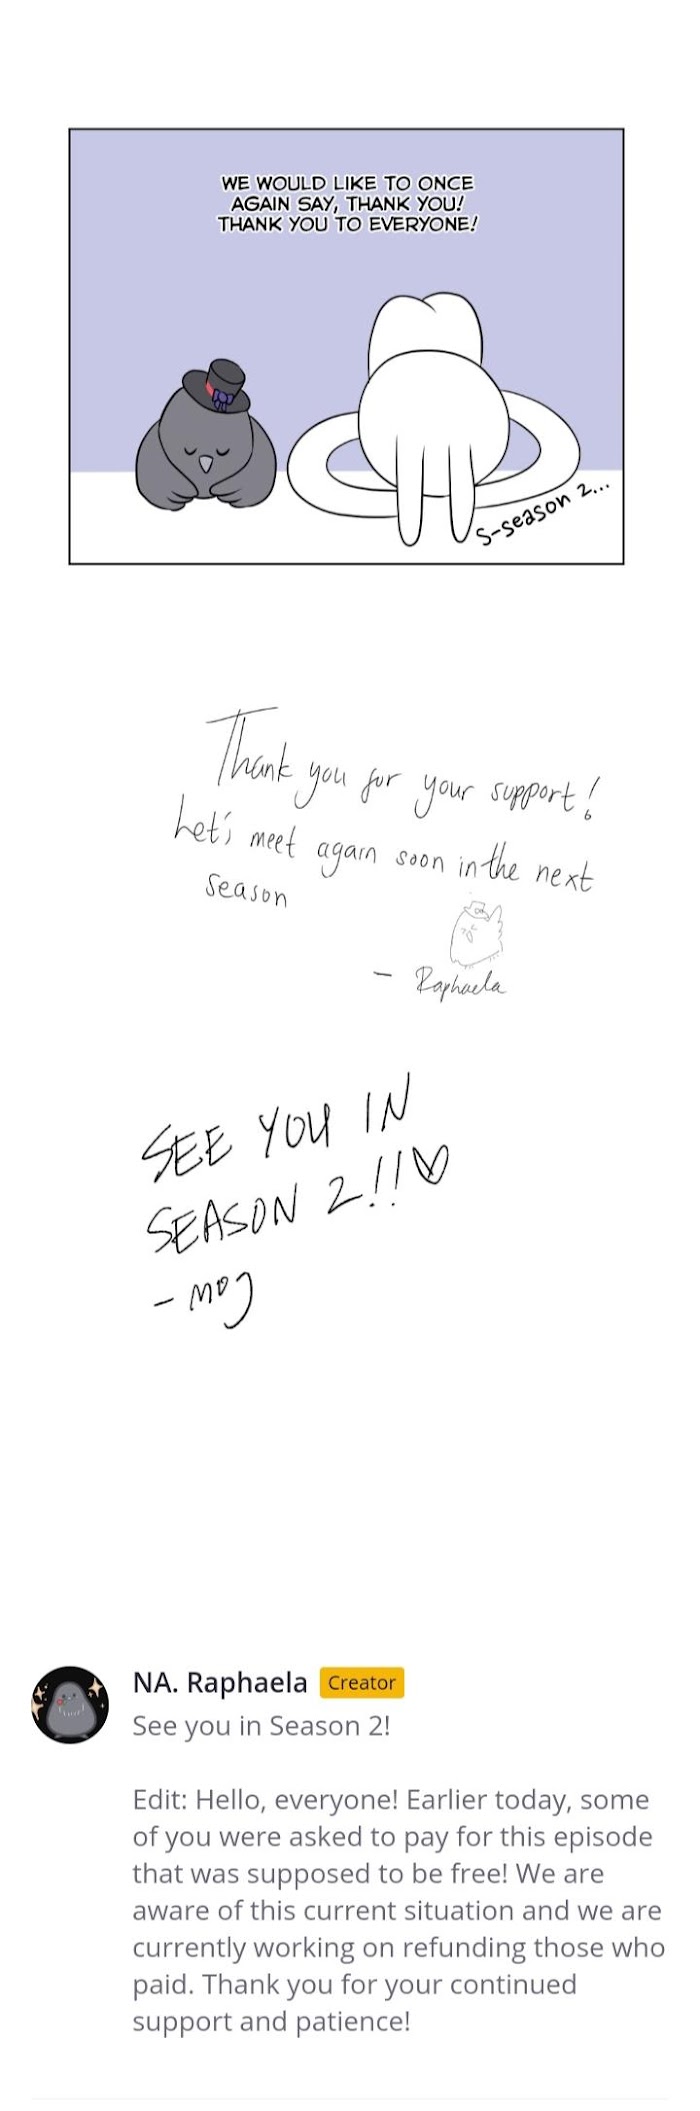 WE WOULD LIKE TO ONCE
AGAIN SAY, THANK YOU!
THANK YOU TO EVERYONE!
S-season 2...
Thank you for your support!
Let's meet again soon in the next
season
- Raphaela
SEE YOU IN
SEASON 2!!♡
- mog
NA. Raphaela Creator
See you in Season 2!
Edit: Hello, everyone! Earlier today, some
of you were asked to pay for this episode
that was supposed to be free! We are
aware of this current situation and we are
currently working on refunding those who
paid. Thank you for your continued
support and patience!